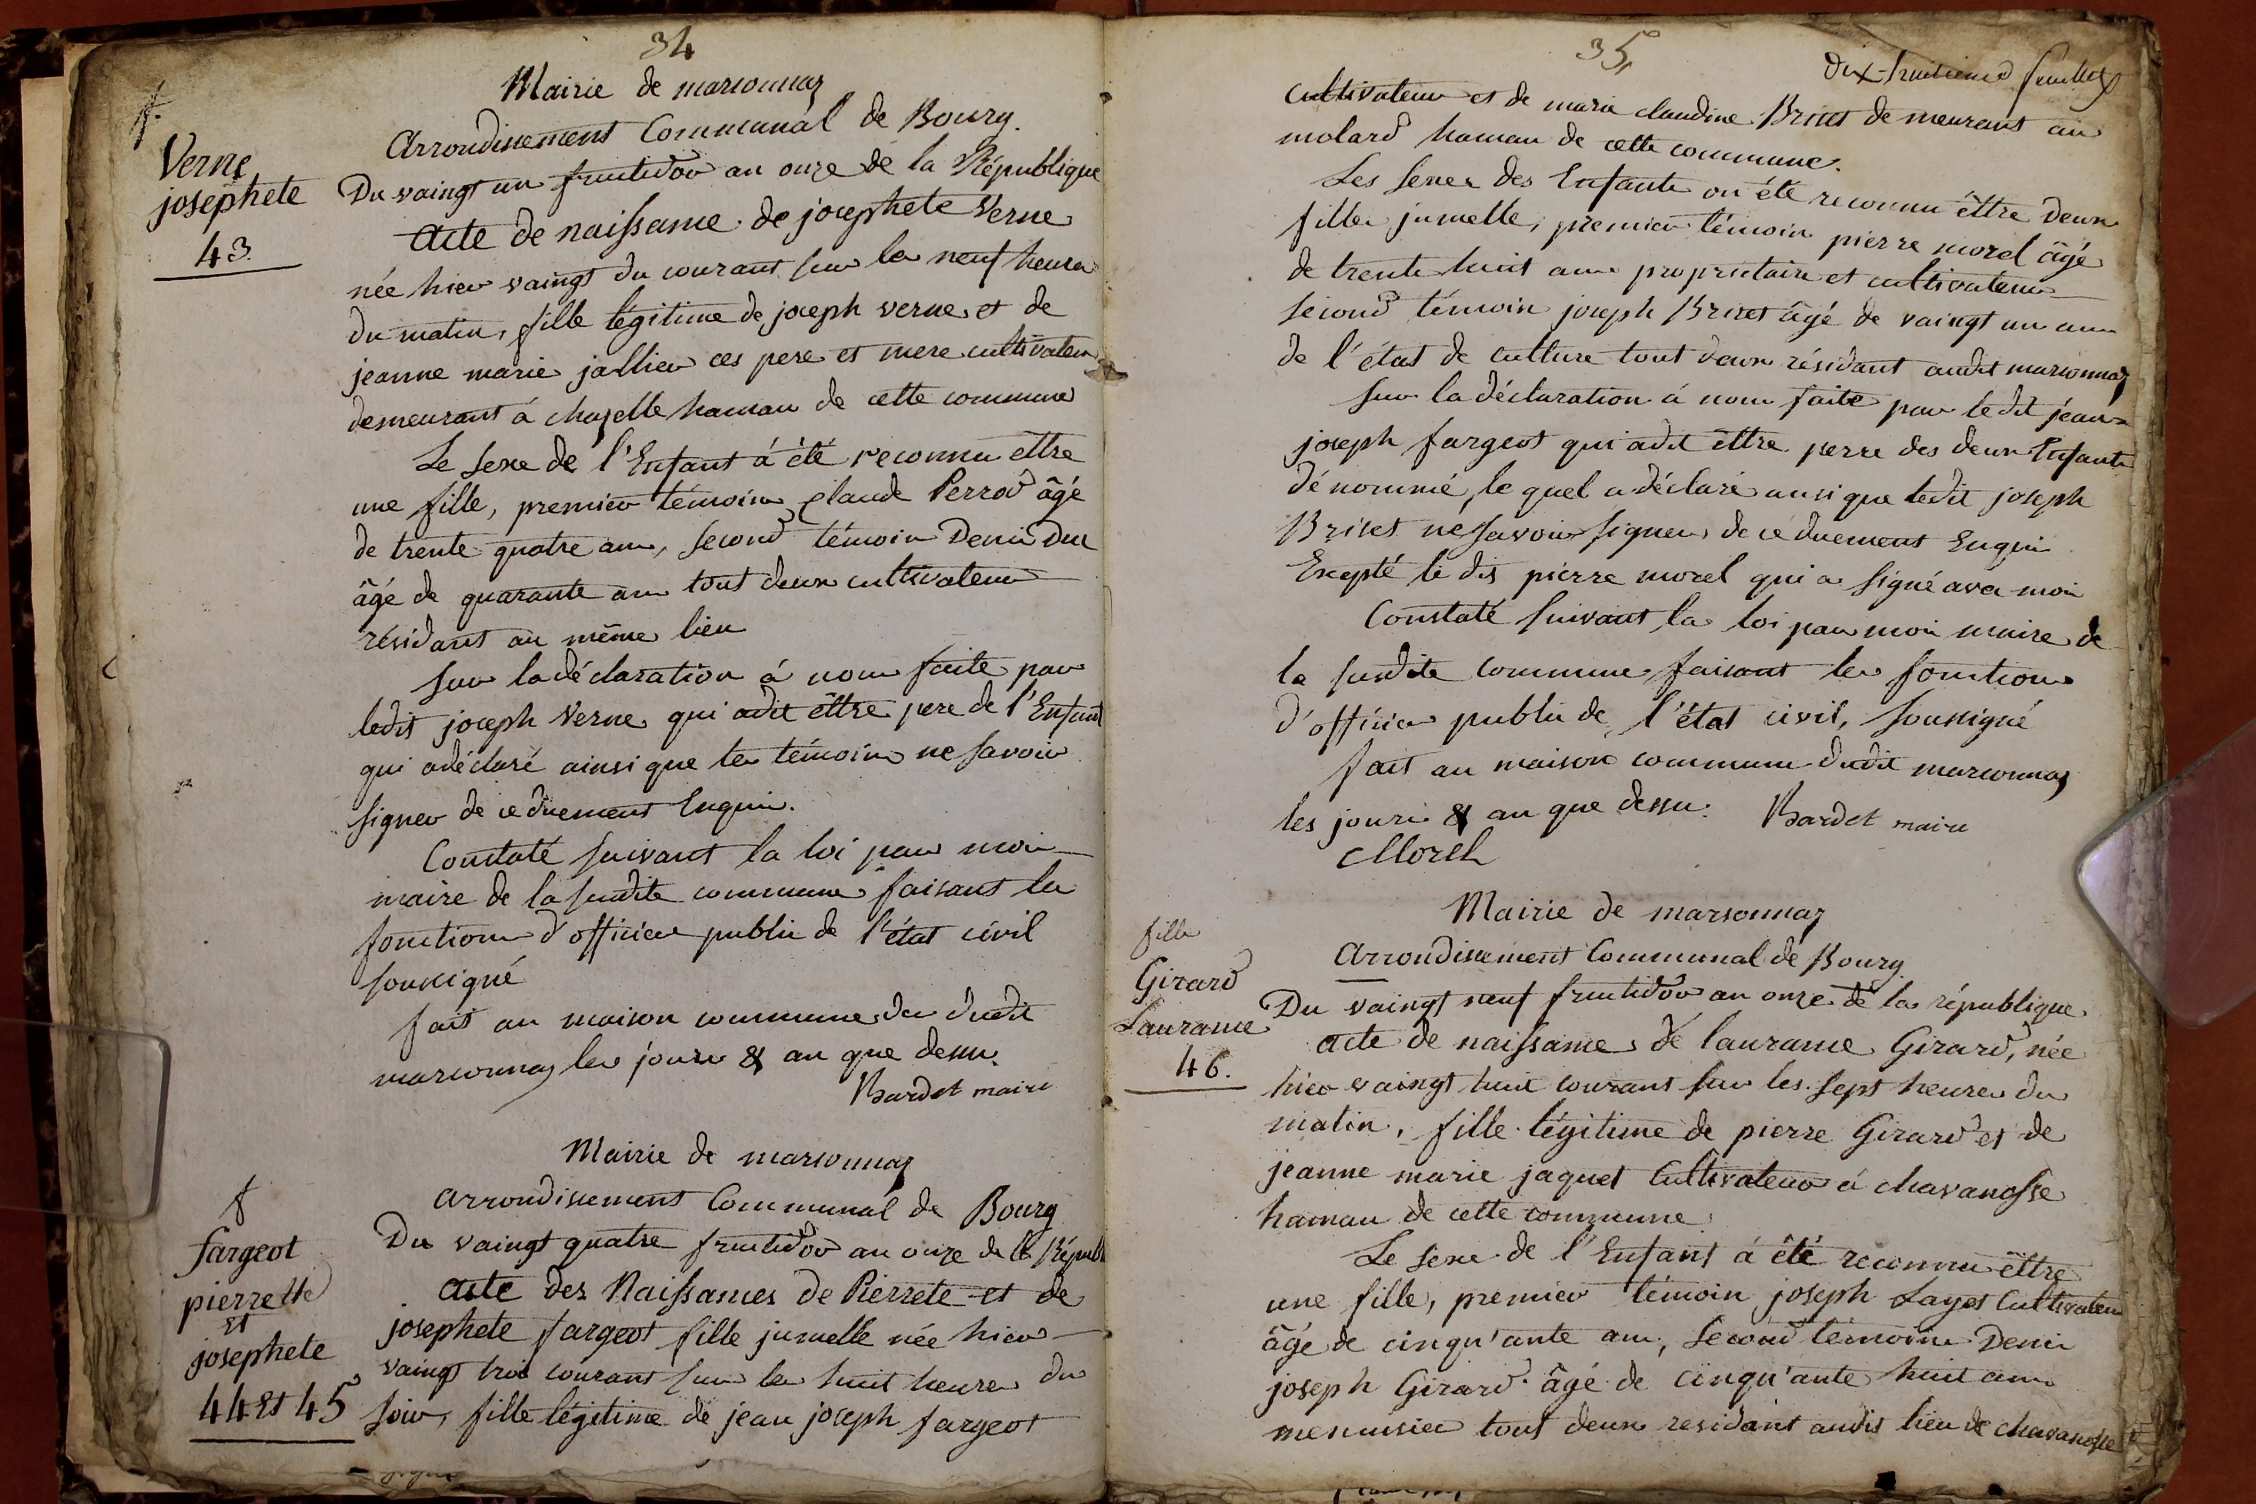 34
Mairie de marsonnaz
f.
Arrondissement Communal de Bourg.
Verne
josephete
43.
Du vaingt un fructidor an onze de la République
acte de naissance de josephete Verne
née hier vaingt du courant sur les neuf heures
du matin, fille légitime de joseph verne et de
jeanne marie jallier ces pere et mere cultivateur
demeurant á chazelle hamau de cette commune
Le sexe de l'Enfant á été reconnu ettre
une fille, premier témoin Claude Perrod âgé
de trente quatre ans, second témoin Denis Duc
âgé de quarante ans tout deux cultivateurs
résidant au même lieu
sur la déclaration á nous faite par
ledit joseph Verne qui adit êttre pere de l'Enfant
qui adéclaré ainsi que les témoins ne savoir
signer de ce duement Enquis.
Constaté suivant la loi par moi
maire de la susdite commune faisant les
fonctions d'officier public de l'état civil
soussigné
fait au maison commune du dudit
marsonnaz les jours & an que dessus.
Bardet maire
Mairie de marsonnaz
Arrondissement Communal de Bourg
f
fargeot
pierrette
Et
josephete
44 Et 45
Du vaingt quatre fructidor an onze de la Républ
acte des Naissances de Pierrete et de
josephete fargeot fille jumelle née hier
vaingt trois courant sur les huit heures du
soir, fille légitime de jean joseph fargeot
35
dix-huitieme feuillet
cultivateur et de marie claudine Briset demeurant au
molard hamau de cette commune.
Les sexes des Enfants on été reconnu êttre deux
filles jumelle, premier témoin pierre morel âgé
de trente huit ans propriétaire et cultivateur
second témoin joseph Briset âgé de vaingt un ans
de l'état de culture tout deux résidant audit marsonnaz
sur la déclaration á nous faite par ledit jean
joseph fargeot qui adit êttre perre des deux Enfants
dénommé, lequel adéclaré ausi que ledit joseph
Briset ne savoir signer de ce duement Enquis
Excepté le dit pierre morel qui a signé avec moi
Constaté suivant la loi par moi maire de
la susdite commune faisant les fonctions
d'officier public de l'état civil, soussigné
fait au maison commune dudit marsonnaz
les jours & an que dessus. Bardet maire
Morel
Mairie de marsonnaz
Arrondissement Communal de Bourg
fille
Girard
Laurance
46.
Du vaingt neuf fructidor an onze de la république
acte de naissance de laurance Girard, née
hier vaingt huit courant sur les sept heures du
matin, fille légitime de pierre Girard et de
jeanne marie jaquet Cultivateur á chavanosse
hamau de cette commune
Le sexe de l'Enfant á été reconnu êttre
une fille, premier témoin joseph Layat Cultivateur
âgé de cinqu'ante ans, second témoin Denis
joseph Girard âgé de cinqu'ante huit ans
menuisier tout deux residant audit lieu de chavanosse